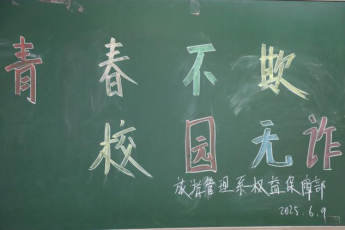 青春不欺
校园无诈
旅游管理系权益保障部
2025.6.9